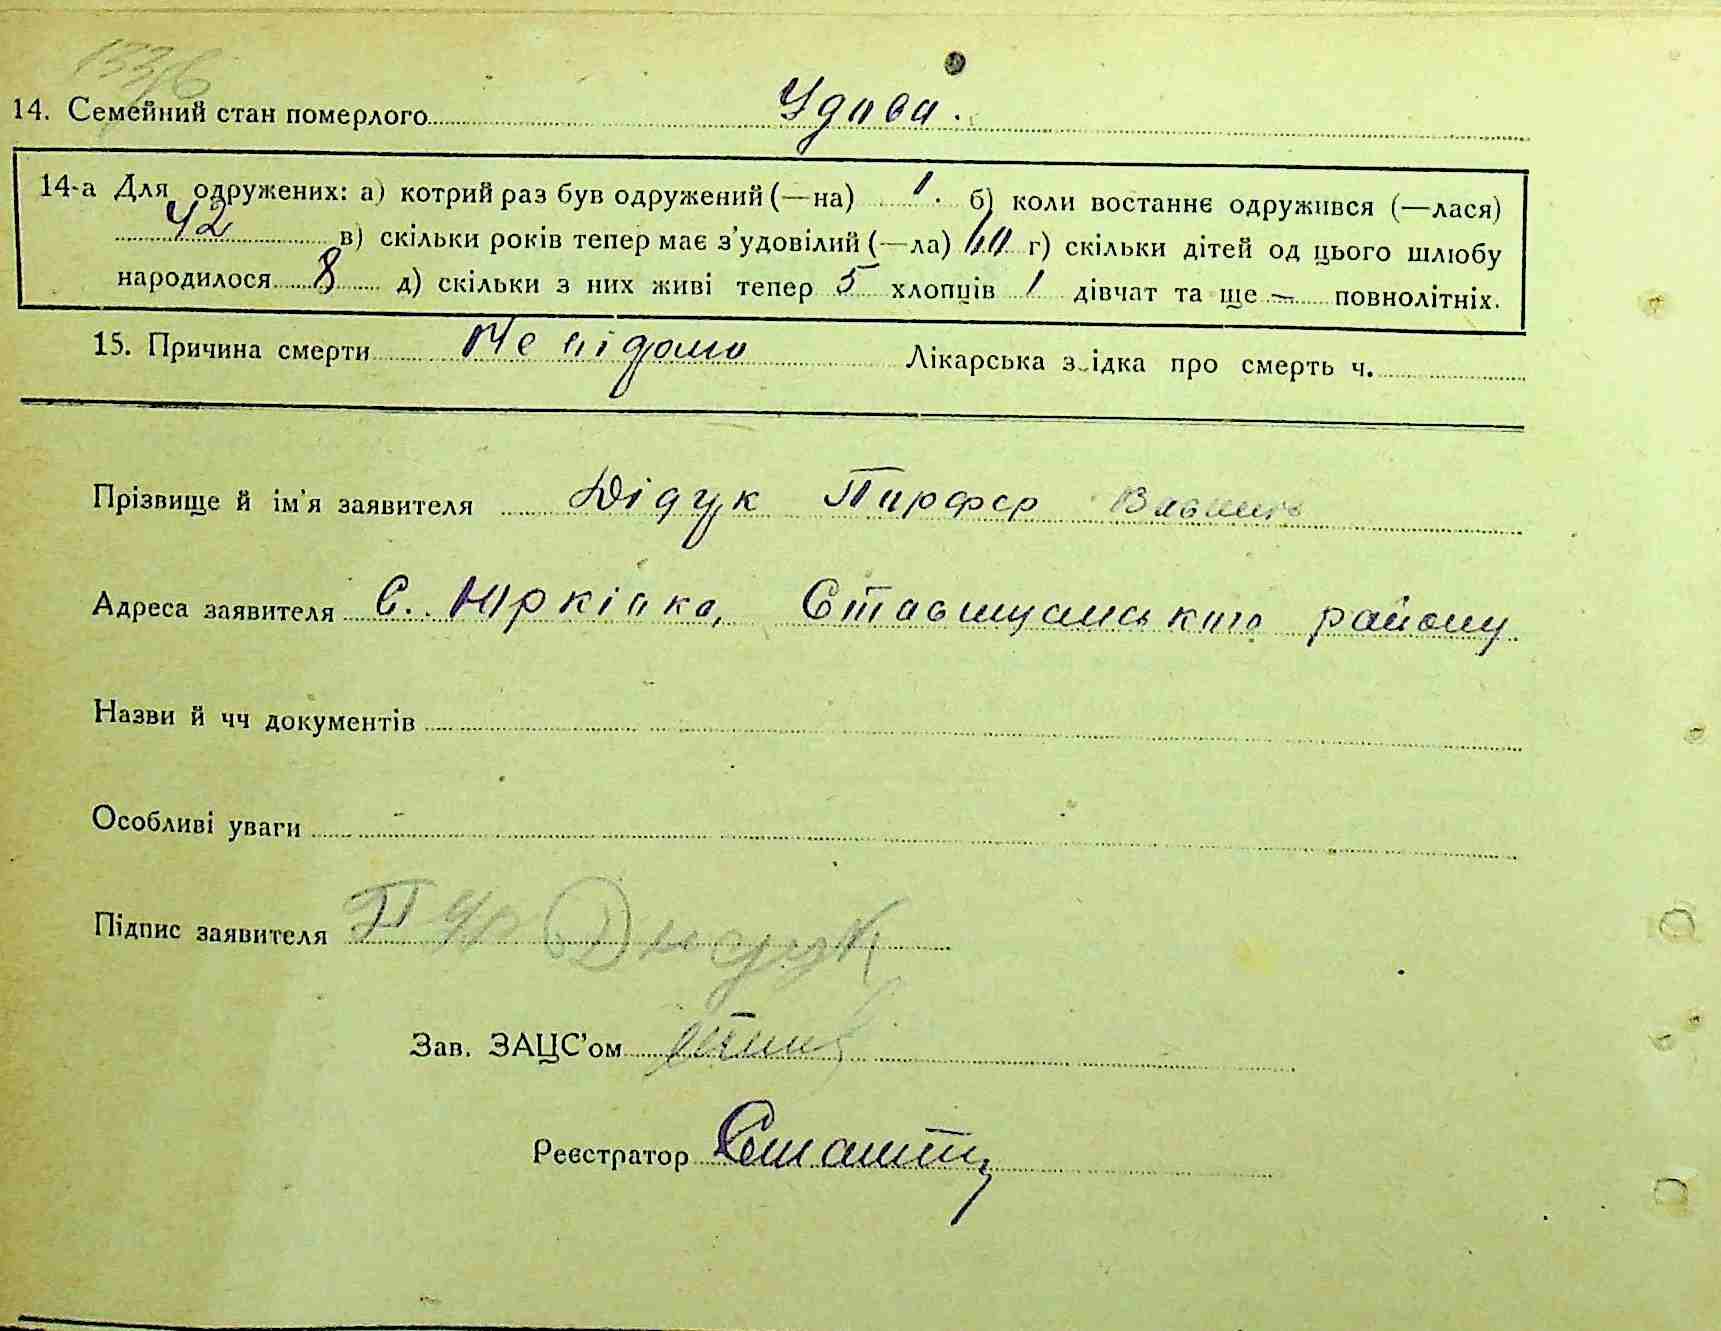 1336
14. Семейний стан померлого Удова.
14-а Для одружених: а) котрий раз був одружений (—на) 1. б) коли востаннє одружився (—лася)
42 в) скільки років тепер має з'удовілий (—ла) г) скільки дітей од цього шлюбу
народилося 8 д) скільки з них живі тепер 5 хлопців 1 дівчат та ще — повнолітніх.
15. Причина смерти Не відомо Лікарська з ідка про смерть ч.
Прізвище й ім'я заявителя Дідук Парфер
Адреса заявителя с. Юрківка, Ставищанського району
Назви й чч документів
Особливі уваги
Підпис заявителя
Зав. ЗАЦС'ом
Реєстратор